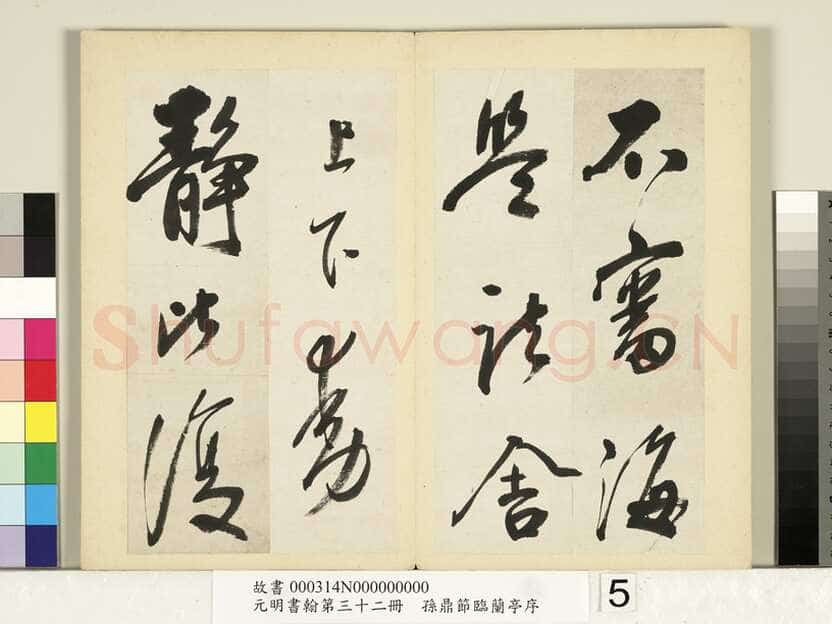 不審海
鹽諸舍
上下動
靜比復
Shufawang.CN
故書 000314N000000000
元明書翰第三十二冊　孫鼎節臨蘭亭序
5